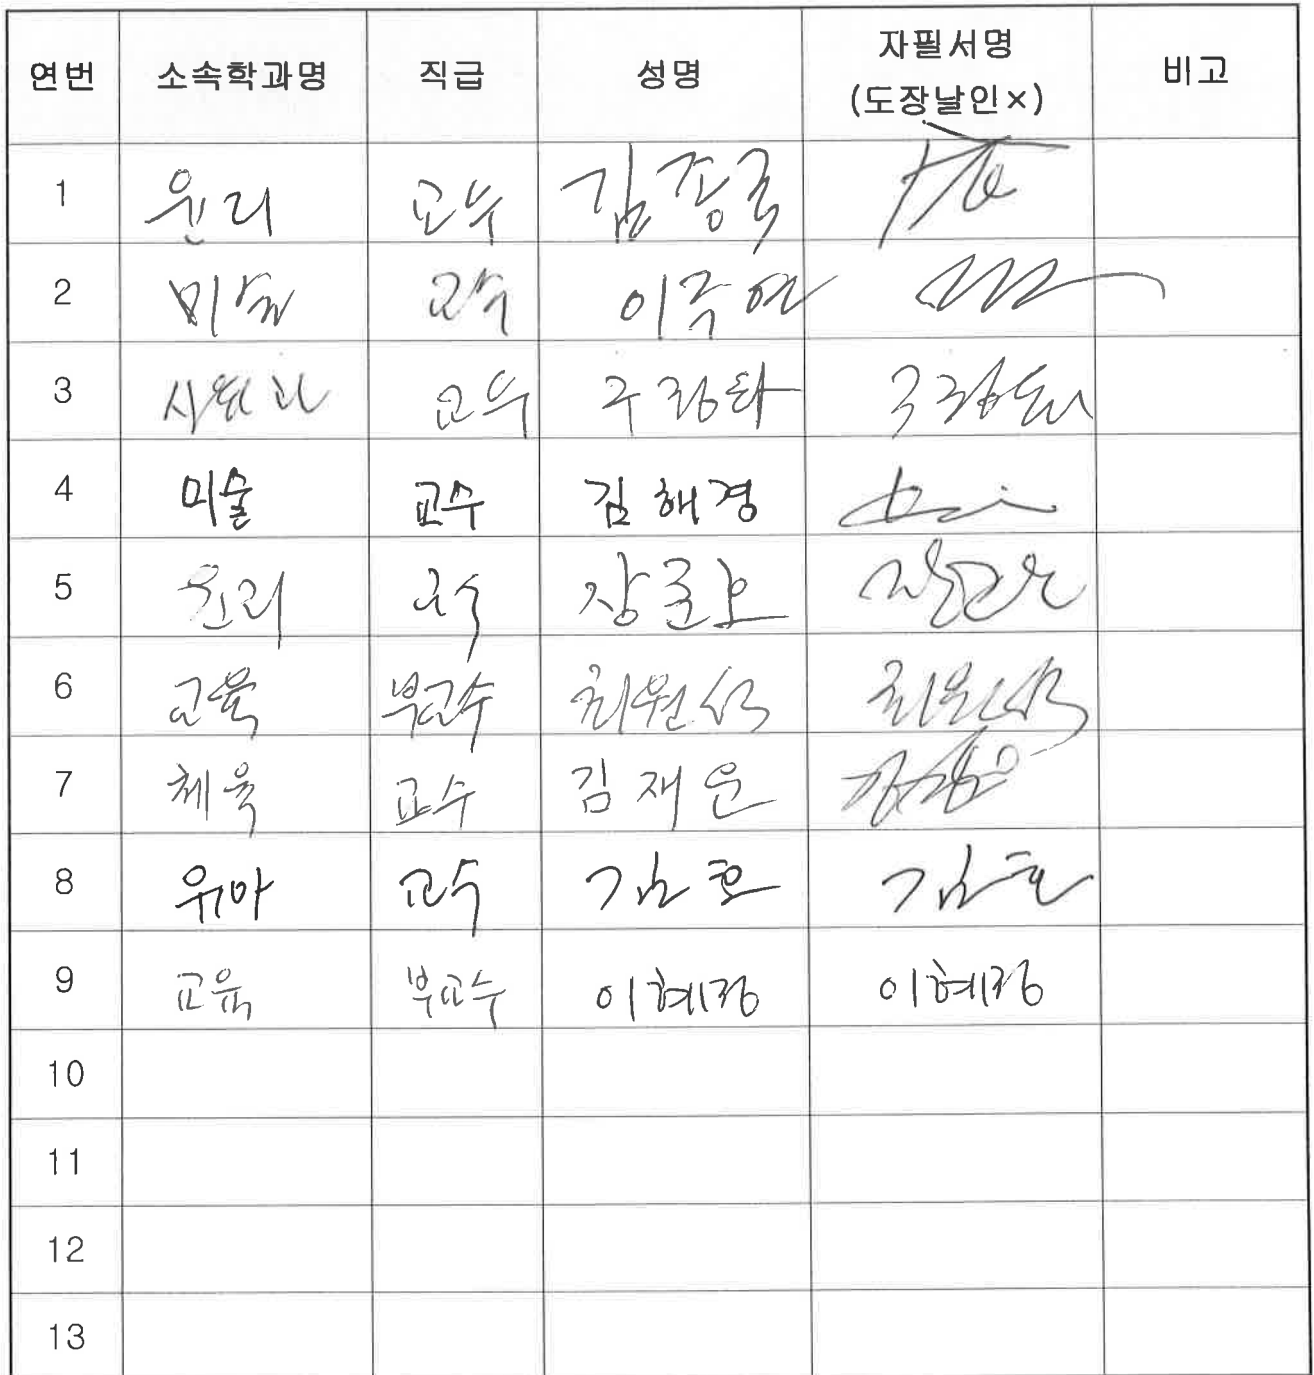 연번 소속학과명 직급 성명 자필서명 비고
(도장날인×)
1 윤리 교수 김종국
2 미술 교수 이주연
3 교수 구정화 구정화
4 미술 교수 김해경
5 윤리 교수
6 교육 부교수 최원석 최원석
7 체육 교수 김재운
8 유아 교수 김호 김호
9 교육 부교수 이혜정 이혜정
10
11
12
13